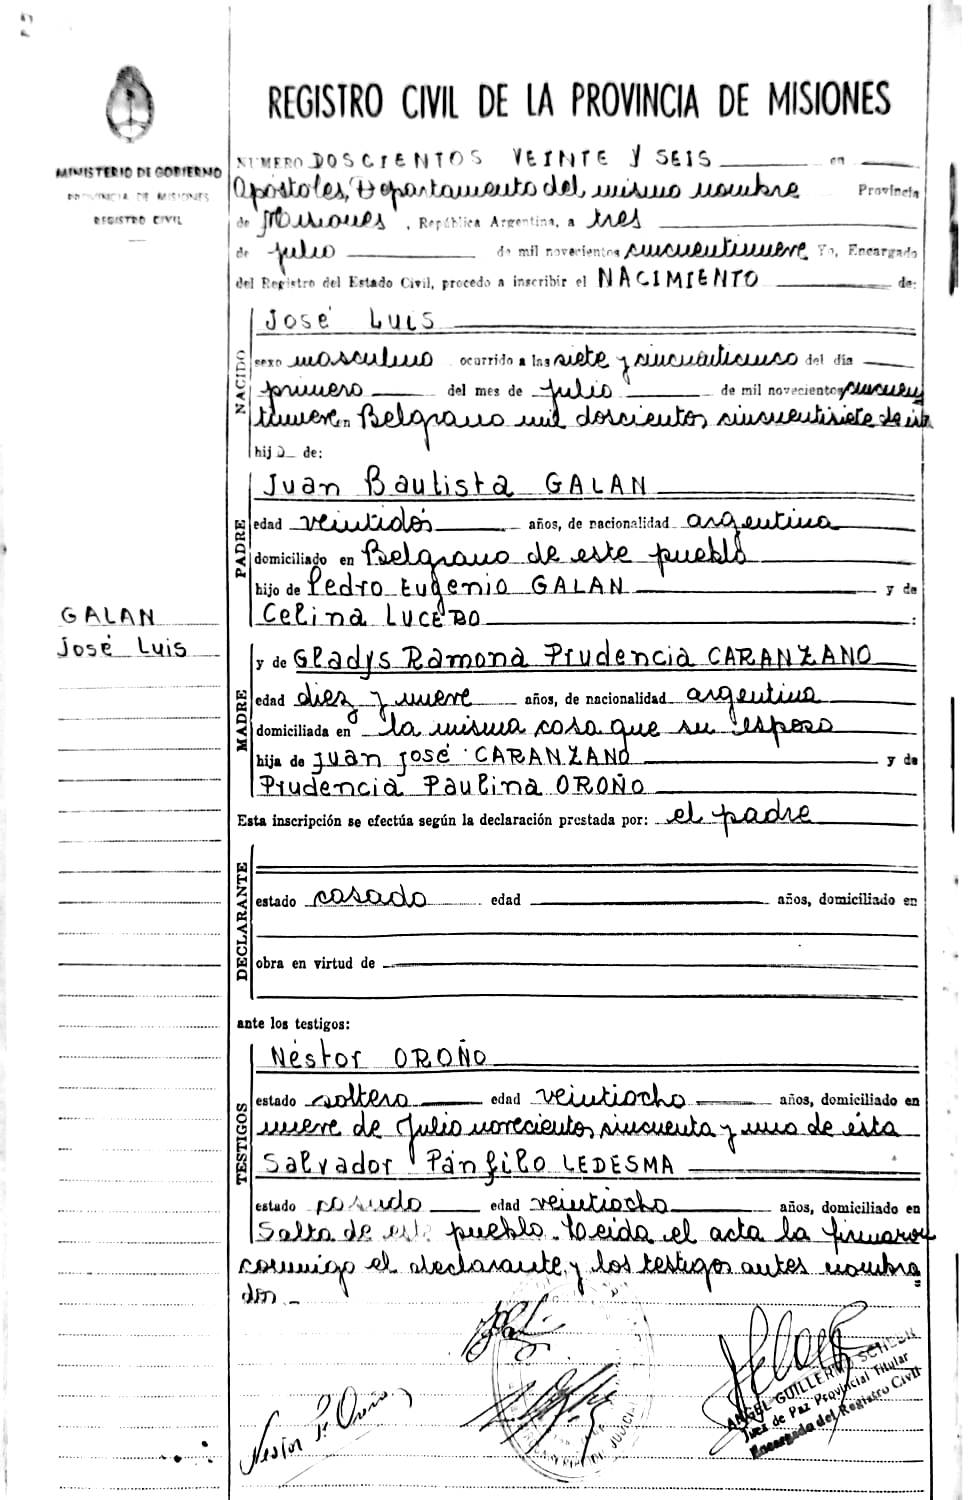 REGISTRO CIVIL DE LA PROVINCIA DE MISIONES
MINISTERIO DE GOBIERNO
PROVINCIA DE MISIONES
REGISTRO CIVIL
NUMERO DOSCIENTOS VEINTE Y SEIS en
Apóstoles, Departamento del mismo nombre Provincia
de Misiones, República Argentina, a tres
de julio de mil novecientos cincuentinueve Yo, Encargado
del Registro del Estado Civil, procedo a inscribir el NACIMIENTO de:
NACIDO
José Luis
sexo masculino ocurrido a las siete y cincuenticinco del día
primero del mes de julio de mil novecientos cincuen
tinueve en Belgrano mil doscientos cincuentisiete de ésta
hijo de:
PADRE
Juan Bautista GALAN
edad veintidós años, de nacionalidad argentina
domiciliado en Belgrano de este pueblo
hijo de Pedro Eugenio GALAN y de
Celina LUCERO :
GALAN
José Luis
MADRE
y de Gladys Ramona Prudencia CARANZANO
edad diez y nueve años, de nacionalidad argentina
domiciliada en la misma casa que su esposo
hija de Juan José CARANZANO y de
Prudencia Paulina OROÑO
Esta inscripción se efectúa según la declaración prestada por: el padre
DECLARANTE
estado casado edad años, domiciliado en
obra en virtud de
ante los testigos:
TESTIGOS
Néstor OROÑO
estado soltero edad veintiocho años, domiciliado en
nueve de Julio novecientos cincuenta y uno de ésta
Salvador Pánfilo LEDESMA
estado casado edad veintiocho años, domiciliado en
Salta de este pueblo. Leida el acta la firmaron
conmigo el declarante y los testigos antes nombra
dos.-
Nestor Oroño
ANGEL GUILLERMO
Juez de Paz Provincial Titular
Encargado del Registro Civil